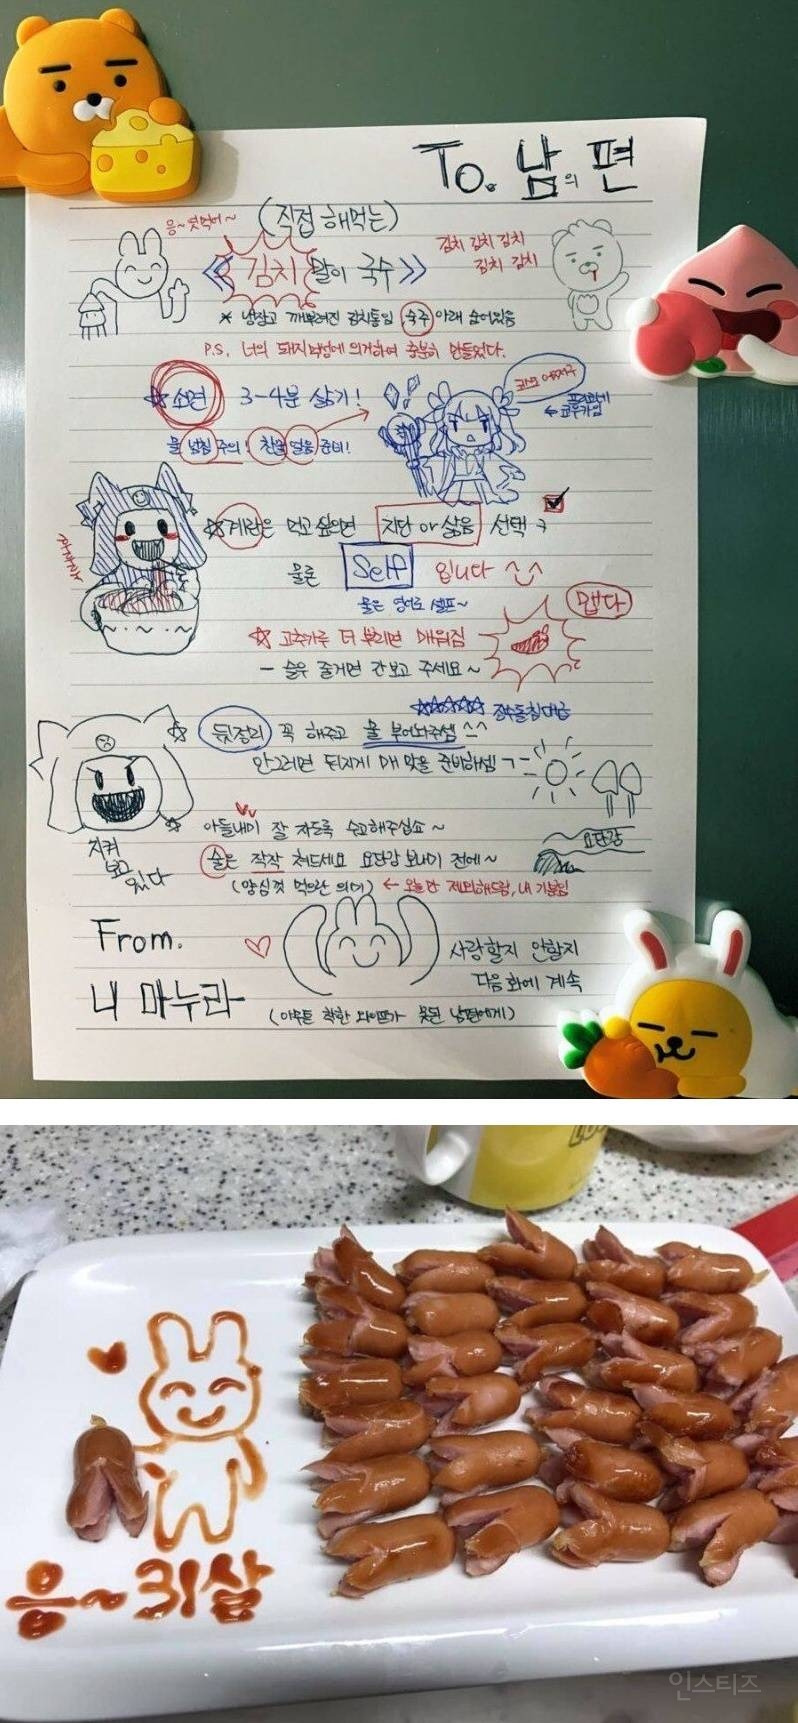 To. 남의 편
(직접 해먹는)
응~ 엿먹어~
《 김치 말이 국수 》
김치 김치 김치
김치 김치
* 냉장고 깨부려진 김치통임 숙주 아래 숨어있음
P.S. 너의 돼지력에 의거하여 충분히 만들었다.
☆ 소면 3-4분 삶기!
물 넘침 주의! 찬물 얼음 준비!
☆ 계란은 먹고싶으면 지단 or 삶음 선택
물론 Self 입니다 ^^
물은 영어로 셀프~
맵다
☆ 고춧가루 더 뿌리면 매워짐
- 술안주 줄거면 간보고 주세요~
☆ 뒷정리 꼭 해주고 물 부어놔주셈 ^^
안그러면 뒤지게 매 맞을 준비하셈
아들내미 잘 자도록 수고해주십쇼~
지켜
보고
있다
☆ 술은 작작 쳐드세요 요단강 보내기 전에~
요단강
(양심껏 먹으란 의미) ← 오늘만 제외해드림, 내 기분임
From.
내 마누라
사랑할지 안할지
다음화에 계속
(아무튼 착한 와이프가 못된 남편에게)
응~31살
인스티즈